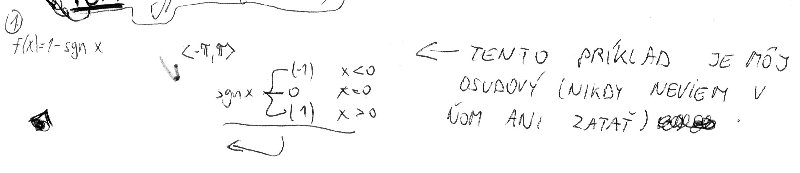 ①
f(x)=1-sgn x
<-π,π>
sgn x
(-1) x<0
0 x=0
(1) x>0
← TENTO PRÍKLAD JE MÔJ
OSUDOVÝ (NIKDY NEVIEM V
ŇOM ANI ZATAŤ)